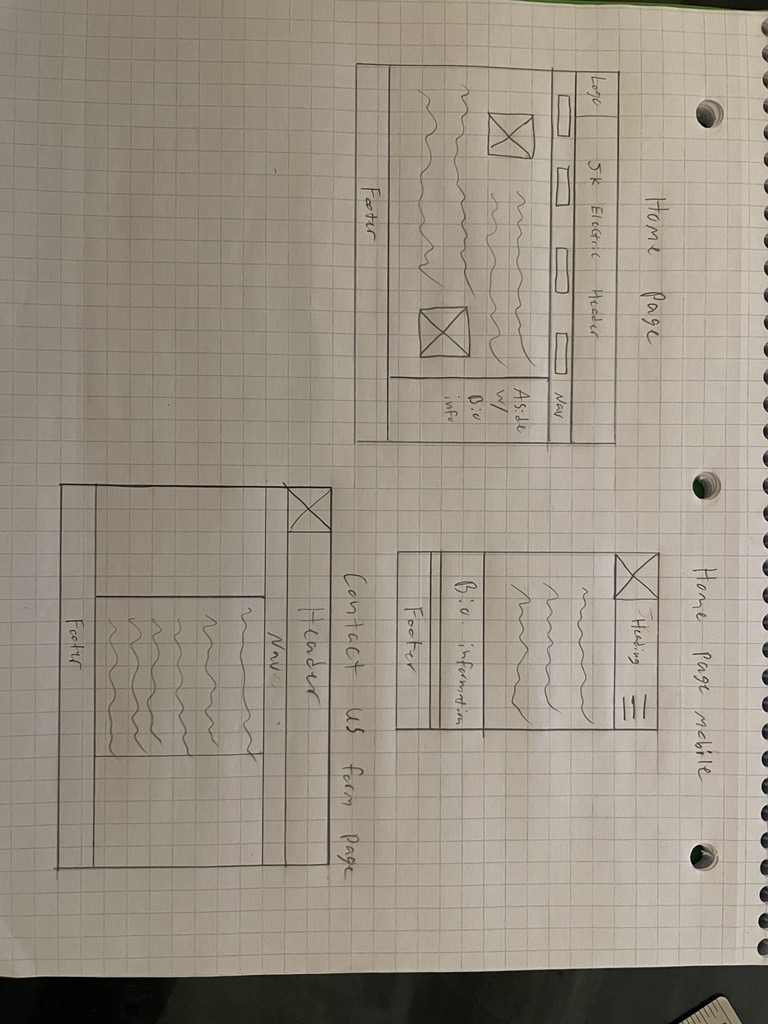 Home page
Logo JK Electric Header
Nav
Aside
w/
Bio
info
Footer
Home page mobile
Heading
Bio information
Footer
Contact us form page
Header
Nav
Footer